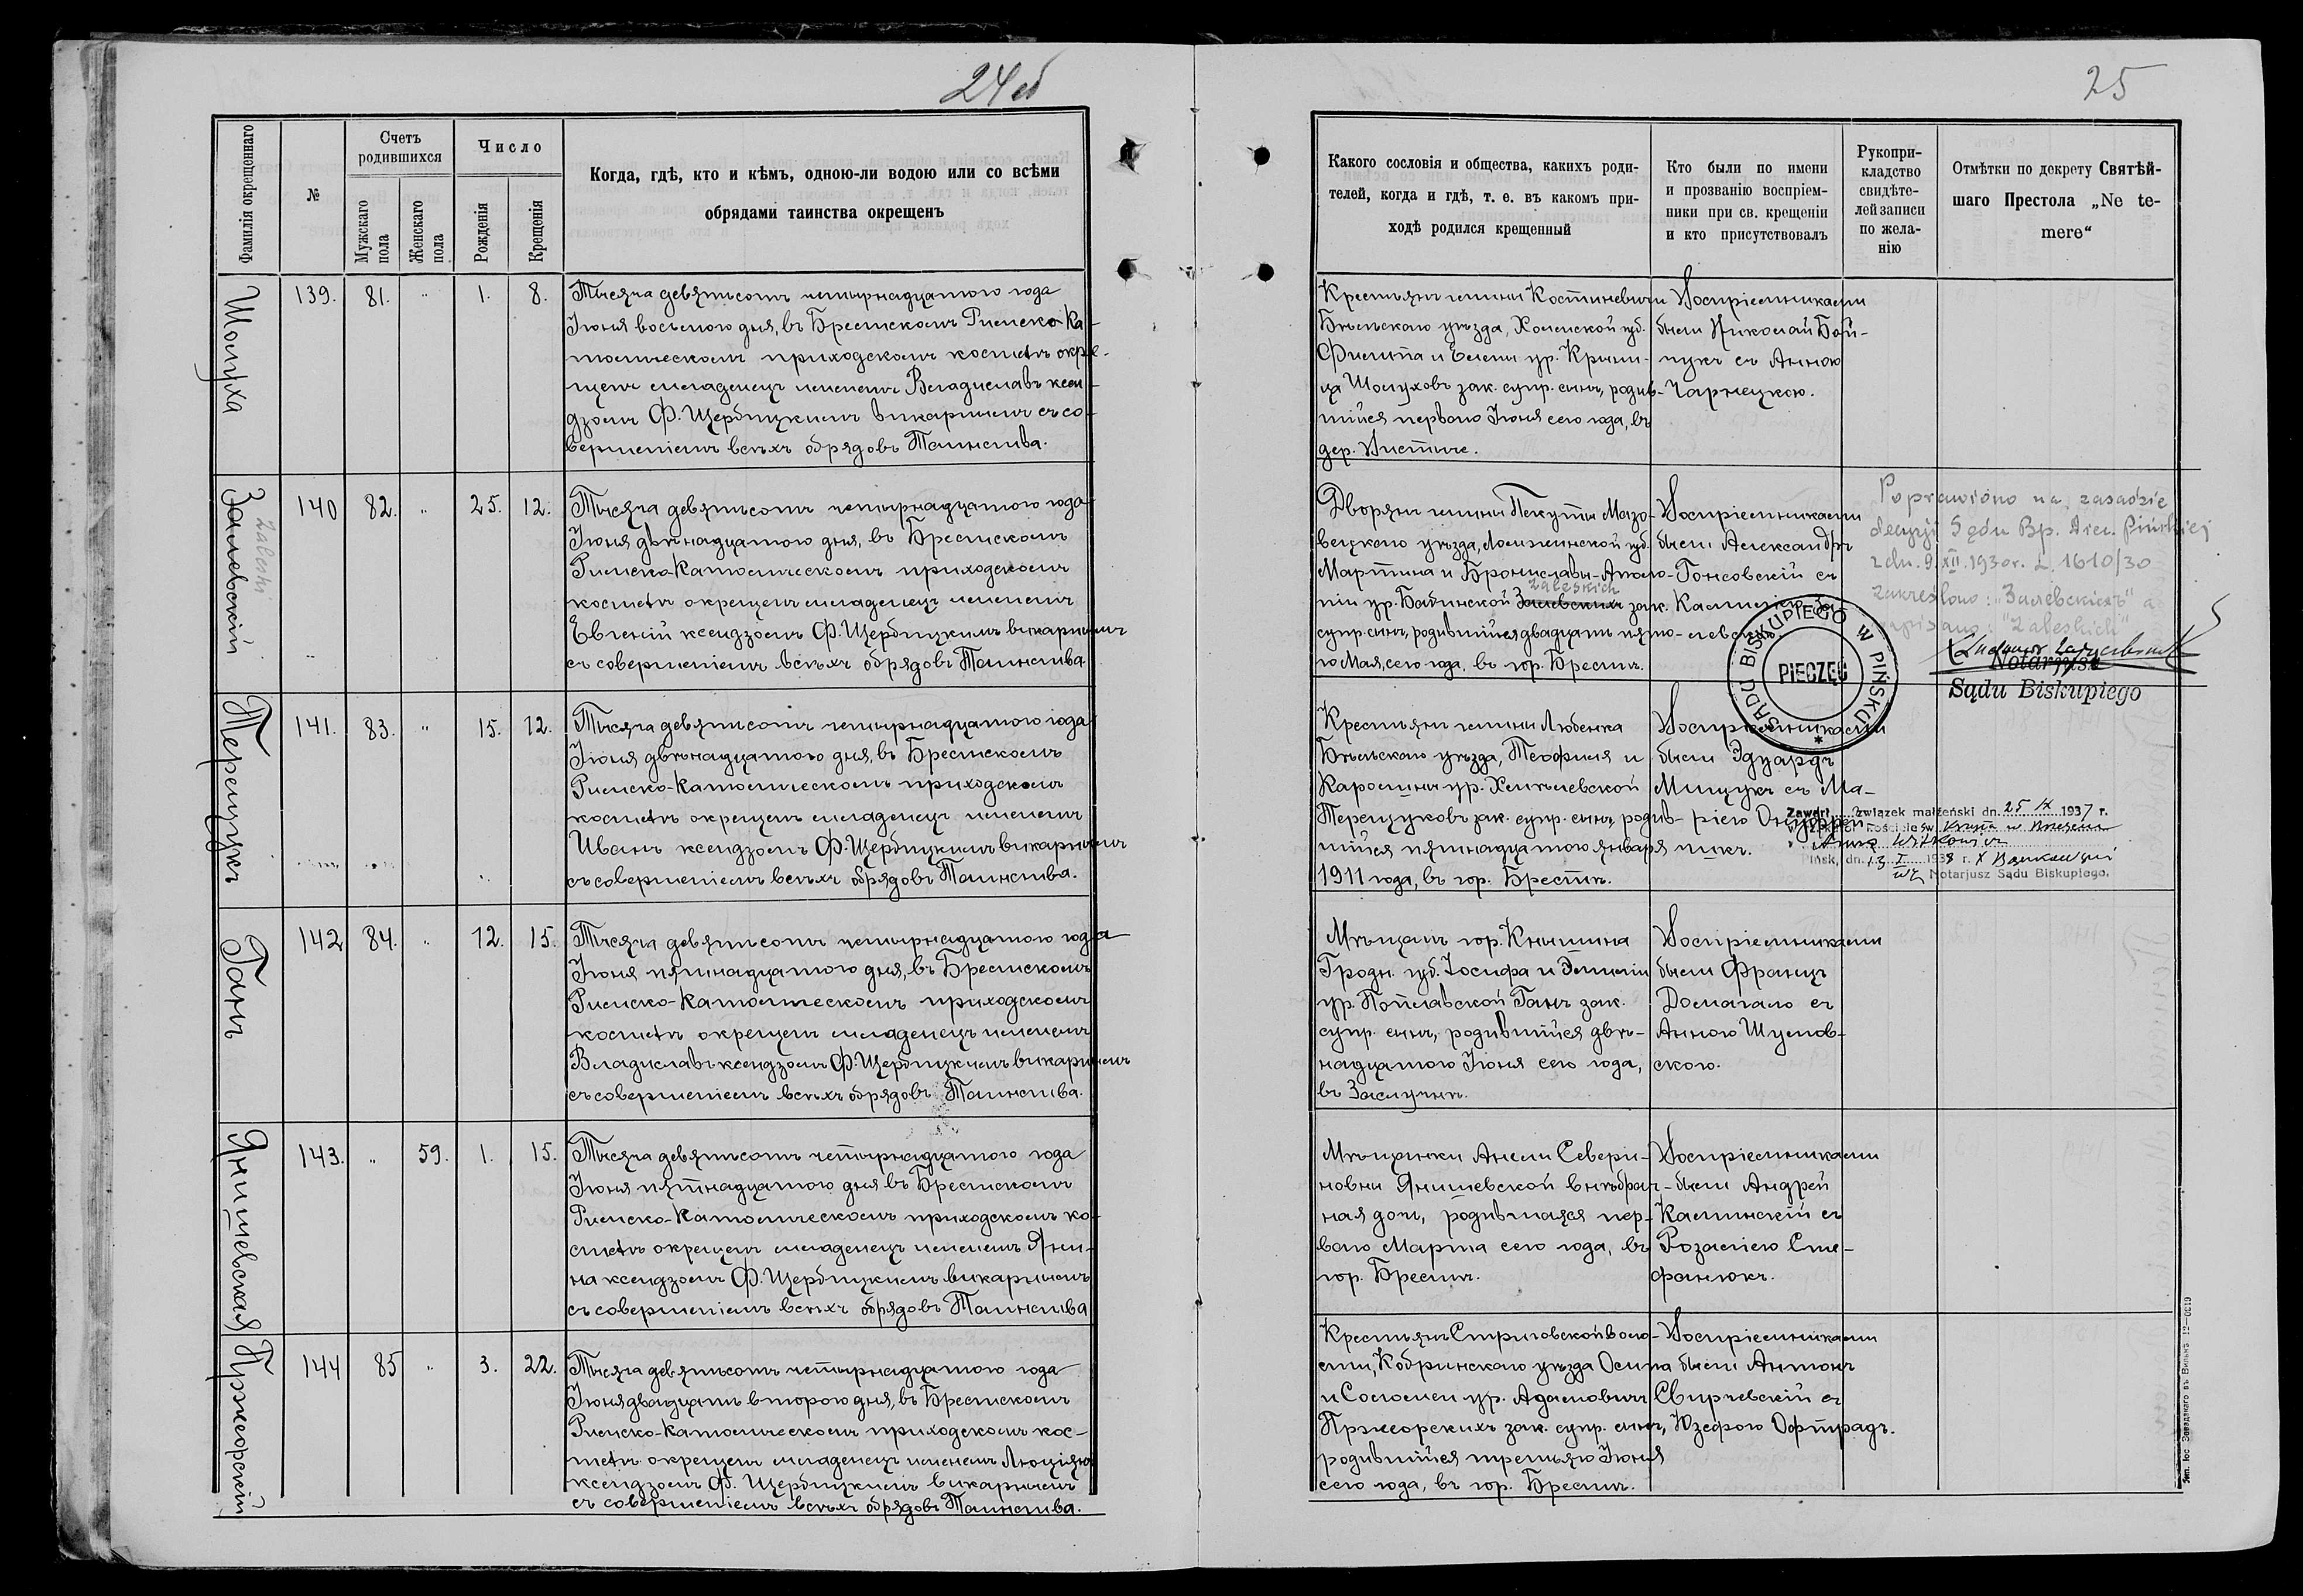 24 об
25
Фамилія окрещеннаго
№
Счетъ родившихся
Мужскаго пола
Женскаго пола
Число
Рожденія
Крещенія
Когда, гдѣ, кто и кѣмъ, одною-ли водою или со всѣми
обрядами таинства окрещенъ
Какого сословія и общества, какихъ роди-
телей, когда и гдѣ, т. е. въ какомъ при-
ходѣ родился крещенный
Кто были по имени
и прозванію воспріем-
ники при св. крещеніи
и кто присутствовалъ
Рукопри-
кладство
свидѣте-
лей записи
по жела-
нію
Отмѣтки по декрету Святѣй-
шаго Престола „Ne te-
mere“
Шолуха
139. 81. " 1. 8.
Тысяча девятьсотъ четырнадцатого года
Іюня восьмого дня, въ Брестскомъ Римско-Ка-
толическомъ приходскомъ костелѣ окре-
щенъ младенецъ именемъ Владиславъ ксен-
дзомъ Ф. Щербицкимъ викарнымъ съ со-
вершеніемъ всѣхъ обрядовъ Таинства.
Крестьянъ гмины Костиневичи
Бѣльскаго уѣзда, Холмской губ.
Филипа и Елены ур. Крыни-
ца Шолуховъ зак. супр. сынъ, родив-
шійся первого Іюня сего года, въ
дер.
Воспріемниками
были Николай Бой-
чукъ съ Анною
Чарнецкою.
Залевскій
Zaleski
140 82. " 25. 12.
Тысяча девятьсотъ четырнадцатого года
Іюня двѣнадцатого дня, въ Брестскомъ
Римско-Католическомъ приходскомъ
костелѣ окрещенъ младенецъ именемъ
Евгеній ксендзомъ Ф. Щербицкимъ викарнымъ
съ совершеніемъ всѣхъ обрядовъ Таинства.
Дворянъ гмины Пекуты Мазо-
вецкаго уѣзда, Ломжинской губ.
Мартина и Брониславы-Аполо-
ніи ур. Бабинской Залевскихъ зак.
Zaleskich
супр. сынъ, родившійся двадцать пято-
го Мая, сего года, въ гор. Брестѣ.
Воспріемниками
были Александръ
Гонсовскій съ
Poprawiono na zasadzie
decyzji Sądu Bp. Diec. Pińskiej
z dn. 9.XII.1930 r. L. 1610/30
zakreślono: "Залевскихъ" a
napisano: "Zaleskich"
Notarjusz
Sądu Biskupiego
SĄDU BISKUPIEGO W PIŃSKU
PIECZĘĆ
Терещукъ
141. 83. " 15. 12.
Тысяча девятьсотъ четырнадцатого года
Іюня двѣнадцатого дня, въ Брестскомъ
Римско-Католическомъ приходскомъ
костелѣ окрещенъ младенецъ именемъ
Иванъ ксендзомъ Ф. Щербицкимъ викарнымъ
съ совершеніемъ всѣхъ обрядовъ Таинства.
Крестьянъ гмины Любенка
Бѣльскаго уѣзда, Теофиля и
Каролины ур. Хмѣлевской
Терещуковъ зак. супр. сынъ, родив-
шійся пятнадцатого января
1911 года, въ гор. Брестѣ.
Воспріемниками
были Эдуардъ
Мищукъ съ Ма-
ріею
Zawarł związek małżeński dn. 25 IX 1937 r.
Pińsk, dn. 13 I 1938 r.
Notarjusz Sądu Biskupiego.
Ганъ
142 84. " 12. 15.
Тысяча девятьсотъ четырнадцатого года
Іюня пятнадцатого дня, въ Брестскомъ
Римско-Католическомъ приходскомъ
костелѣ окрещенъ младенецъ именемъ
Владиславъ ксендзомъ Ф. Щербицкимъ викарнымъ
съ совершеніемъ всѣхъ обрядовъ Таинства.
Мѣщанъ гор. Кнышина
Гродн. губ. Іосифа и Эмиліи
ур. Поплавской Ганъ зак.
супр. сынъ, родившійся двѣ-
надцатого Іюня сего года,
въ
Воспріемниками
были Францъ
Домагало съ
Анною Шумов-
скою.
Янишевская
143. " 59. 1. 15.
Тысяча девятьсотъ четырнадцатого года
Іюня пятнадцатого дня въ Брестскомъ
Римско-Католическомъ приходскомъ ко-
стелѣ окрещенъ младенецъ именемъ Яни-
на ксендзомъ Ф. Щербицкимъ викарнымъ
съ совершеніемъ всѣхъ обрядовъ Таинства
Мѣщанки Анели Севери-
новны Янишевской внѣбрач-
ная дочь, родившаяся пер-
вого Марта сего года, въ
гор. Брестѣ.
Воспріемниками
были Андрей
Калинскій съ
Розаліею Сте-
фанюкъ.
Пржеорскій
144 85 " 3. 22.
Тысяча девятьсотъ четырнадцатого года
Іюня двадцать второго дня, въ Брестскомъ
Римско-Католическомъ приходскомъ кос-
телѣ окрещенъ младенецъ именемъ Люціянъ
ксендзомъ Ф. Щербицкимъ викарнымъ
съ совершеніемъ всѣхъ обрядовъ Таинства.
Крестьянъ Стриговской воло-
сти, Кобринскаго уѣзда Осипа
и Соломеи ур. Адамовичъ
Пржеорскихъ зак. супр. сынъ,
родившійся третьяго Іюня
сего года, въ гор. Брестѣ.
Воспріемниками
были Антонъ
Свирчевскій съ
Юзефою Офтрадъ.